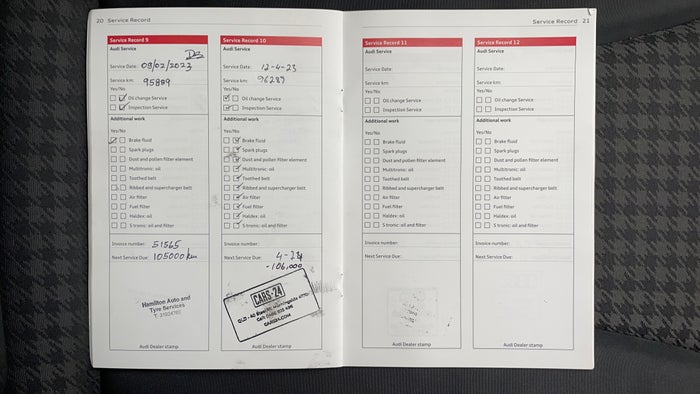 20 Service Record
Service Record 9
Audi Service
DB
Service Date: 08/02/2023
Service km: 95889
Yes/No
Oil change Service
Inspection Service
Additional work
Yes/No
Brake fluid
Spark plugs
Dust and pollen filter element
Multitronic: oil
Toothed belt
Ribbed and supercharger belt
Air filter
Fuel filter
Haldex: oil
S tronic: oil and filter
Invoice number: 51565
Next Service Due: 105000 km
Hamilton Auto and
Tyre Services
Audi Dealer stamp
Service Record 10
Audi Service
Service Date: 12-4-23
Service km: 96289
Yes/No
Oil change Service
Inspection Service
Additional work
Yes/No
Brake fluid
Spark plugs
Dust and pollen filter element
Multitronic: oil
Toothed belt
Ribbed and supercharger belt
Air filter
Fuel filter
Haldex: oil
S tronic: oil and filter
Invoice number:
Next Service Due: 4-24
-106,000
CARS-24
CARS24.COM
Audi Dealer stamp
Service Record 21
Service Record 11
Audi Service
Service Date:
Service km:
Yes/No
Oil change Service
Inspection Service
Additional work
Yes/No
Brake fluid
Spark plugs
Dust and pollen filter element
Multitronic: oil
Toothed belt
Ribbed and supercharger belt
Air filter
Fuel filter
Haldex: oil
S tronic: oil and filter
Invoice number:
Next Service Due:
Audi Dealer stamp
Service Record 12
Audi Service
Service Date:
Service km:
Yes/No
Oil change Service
Inspection Service
Additional work
Yes/No
Brake fluid
Spark plugs
Dust and pollen filter element
Multitronic: oil
Toothed belt
Ribbed and supercharger belt
Air filter
Fuel filter
Haldex: oil
S tronic: oil and filter
Invoice number:
Next Service Due:
Audi Dealer stamp